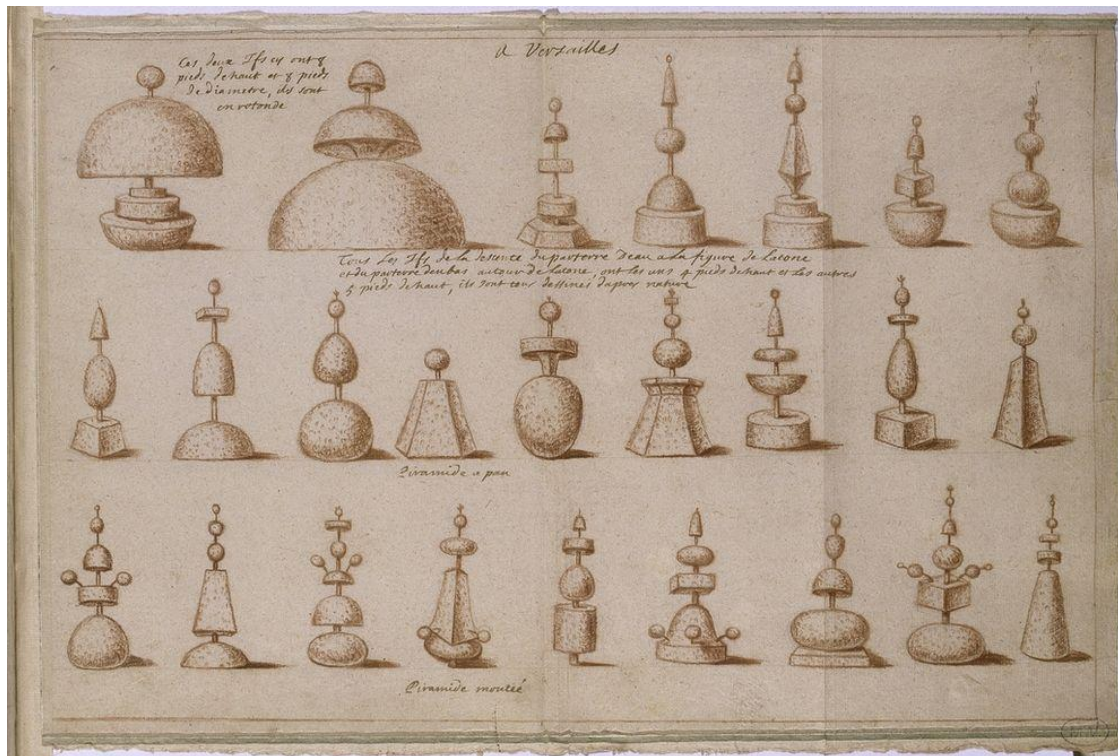 A Versailles
Ces deux Ifs cy ont 8
pieds de haut et 8 pieds
de diametre, ils sont
en rotonde
Tous Les Ifs de la desente du parterre D'eau a la figure de Latone
et du parterre den bas autour de Latone, ont les uns 4 pieds de haut et Les autres
5 pieds de haut, ils sont tous dessinés d'apres nature
Piramide a pan
Piramide montée